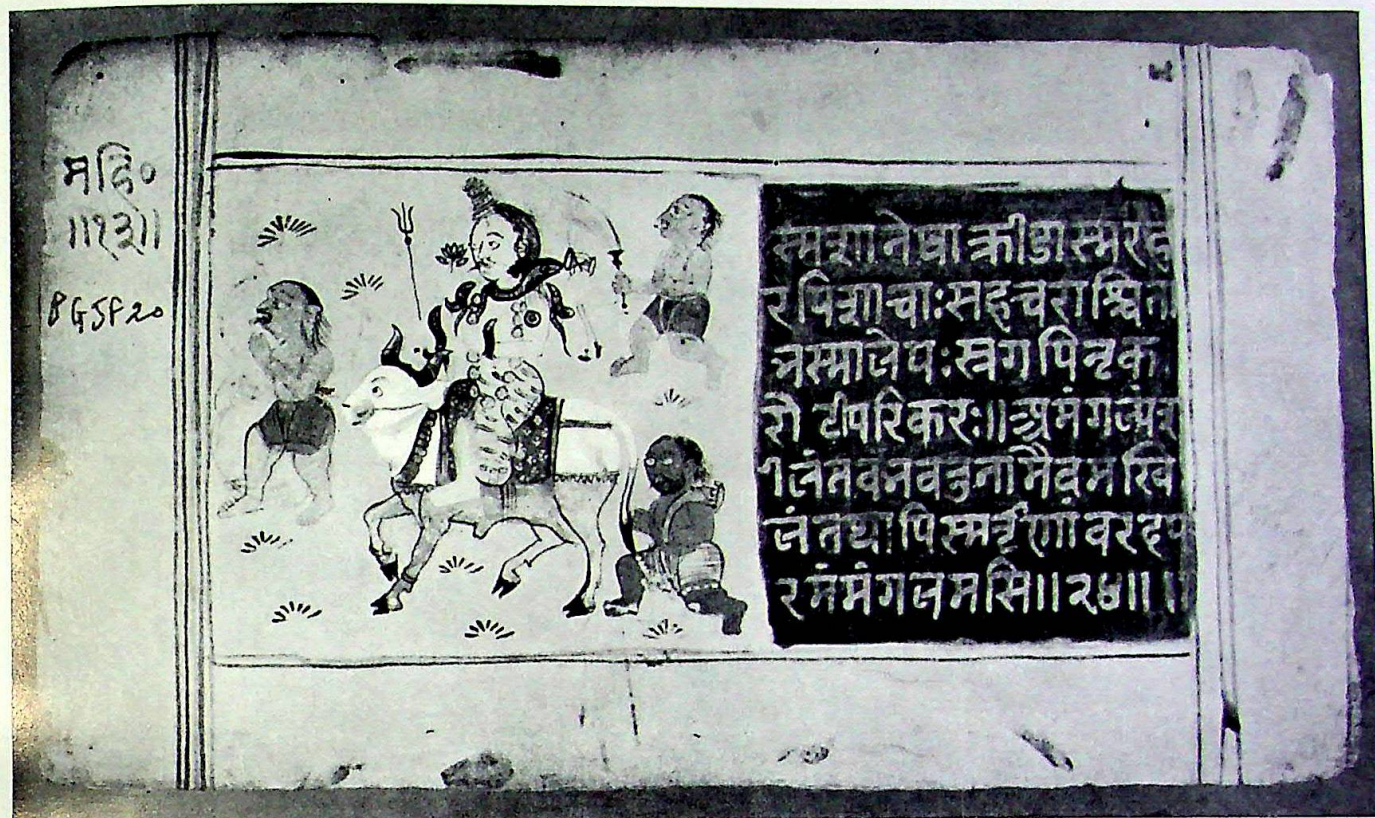 महि०
॥१३॥
BG5F20
स्मशानेष्वाक्रीडास्मरह
रपिशाचाःसहचराश्चिता
भस्मालेपःस्रगपिनृक
रोटीपरिकरः॥अमंगल्यंश
लंतवभवतुनामैवमखि
लंतथापिस्मर्तॄणांवरदप
रमंमंगलमसि॥२४॥